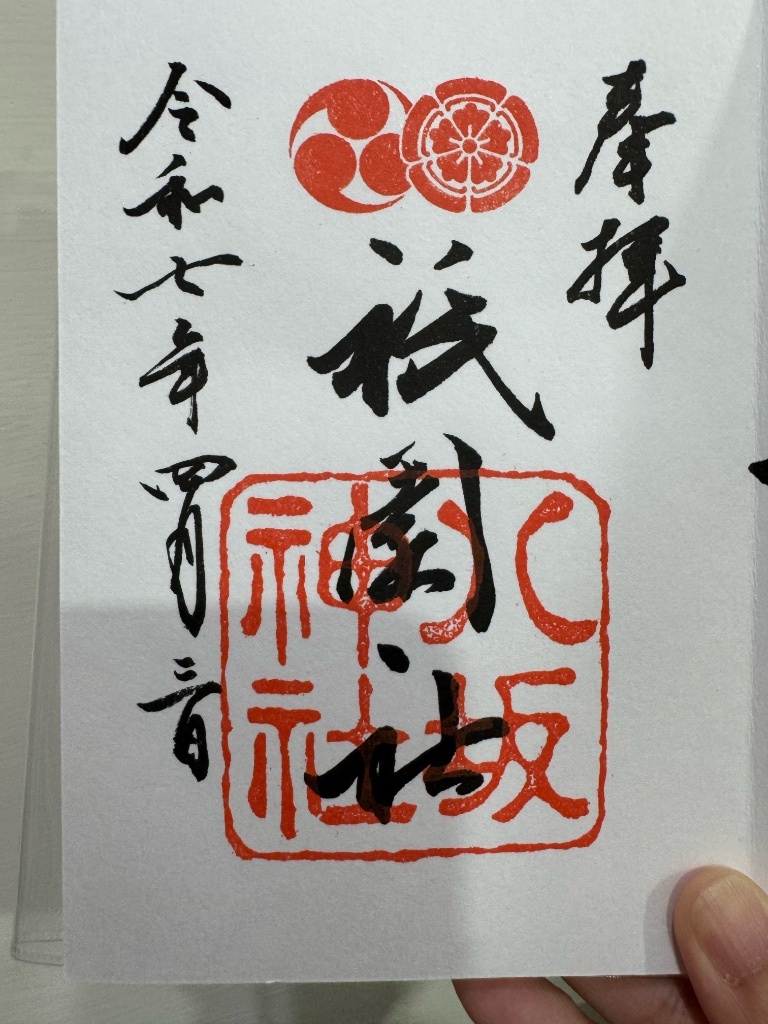 奉拝
祇園社
八坂
神社
令和七年四月三日